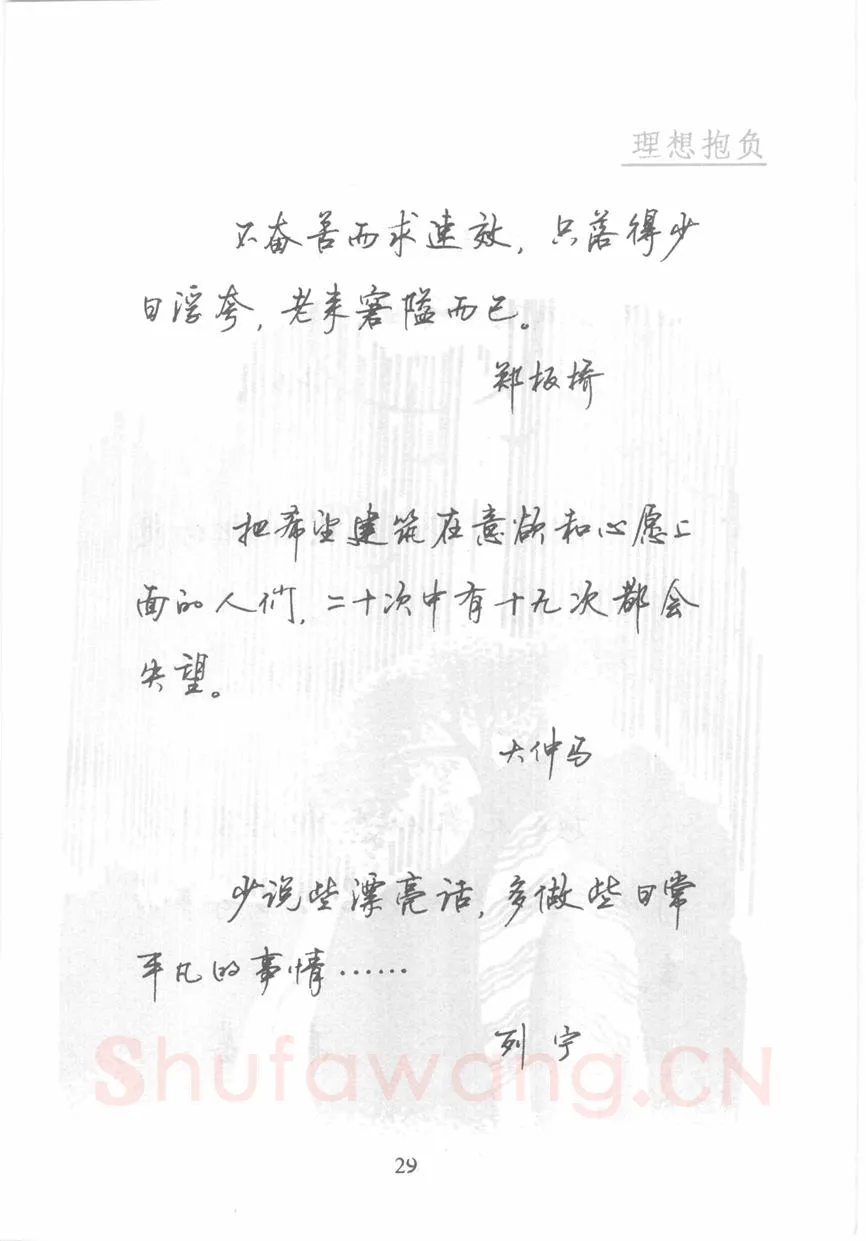 理想抱负
不奋苦而求速效，只落得少
日浮夸，老来窘隘而已。
郑板桥
把希望建筑在意欲和心愿上
面的人们，二十次中有十九次都会
失望。
大仲马
少说些漂亮话，多做些日常
平凡的事情……
列宁
Shufawang.CN
29